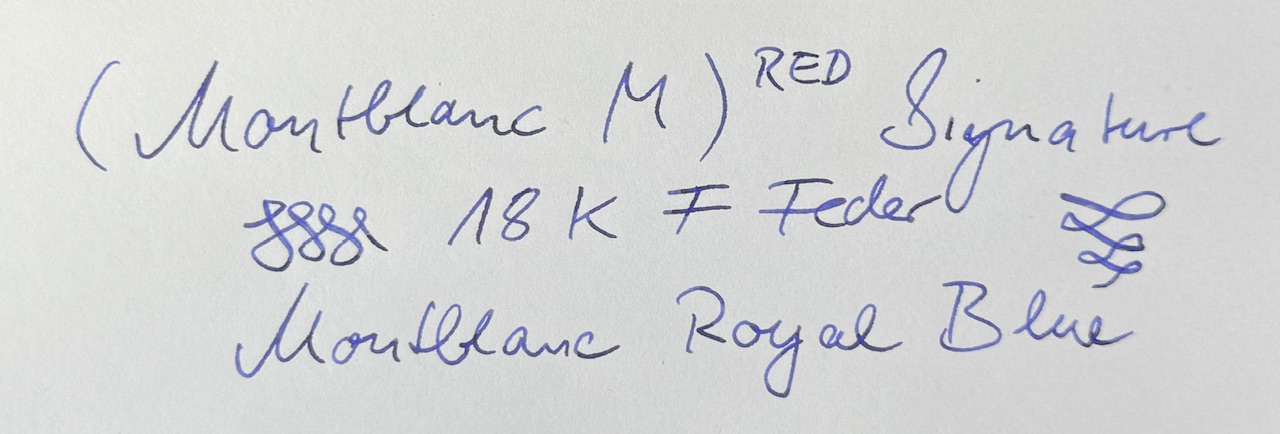 (Montblanc M) RED Signature
18K F Feder
Montblanc Royal Blue